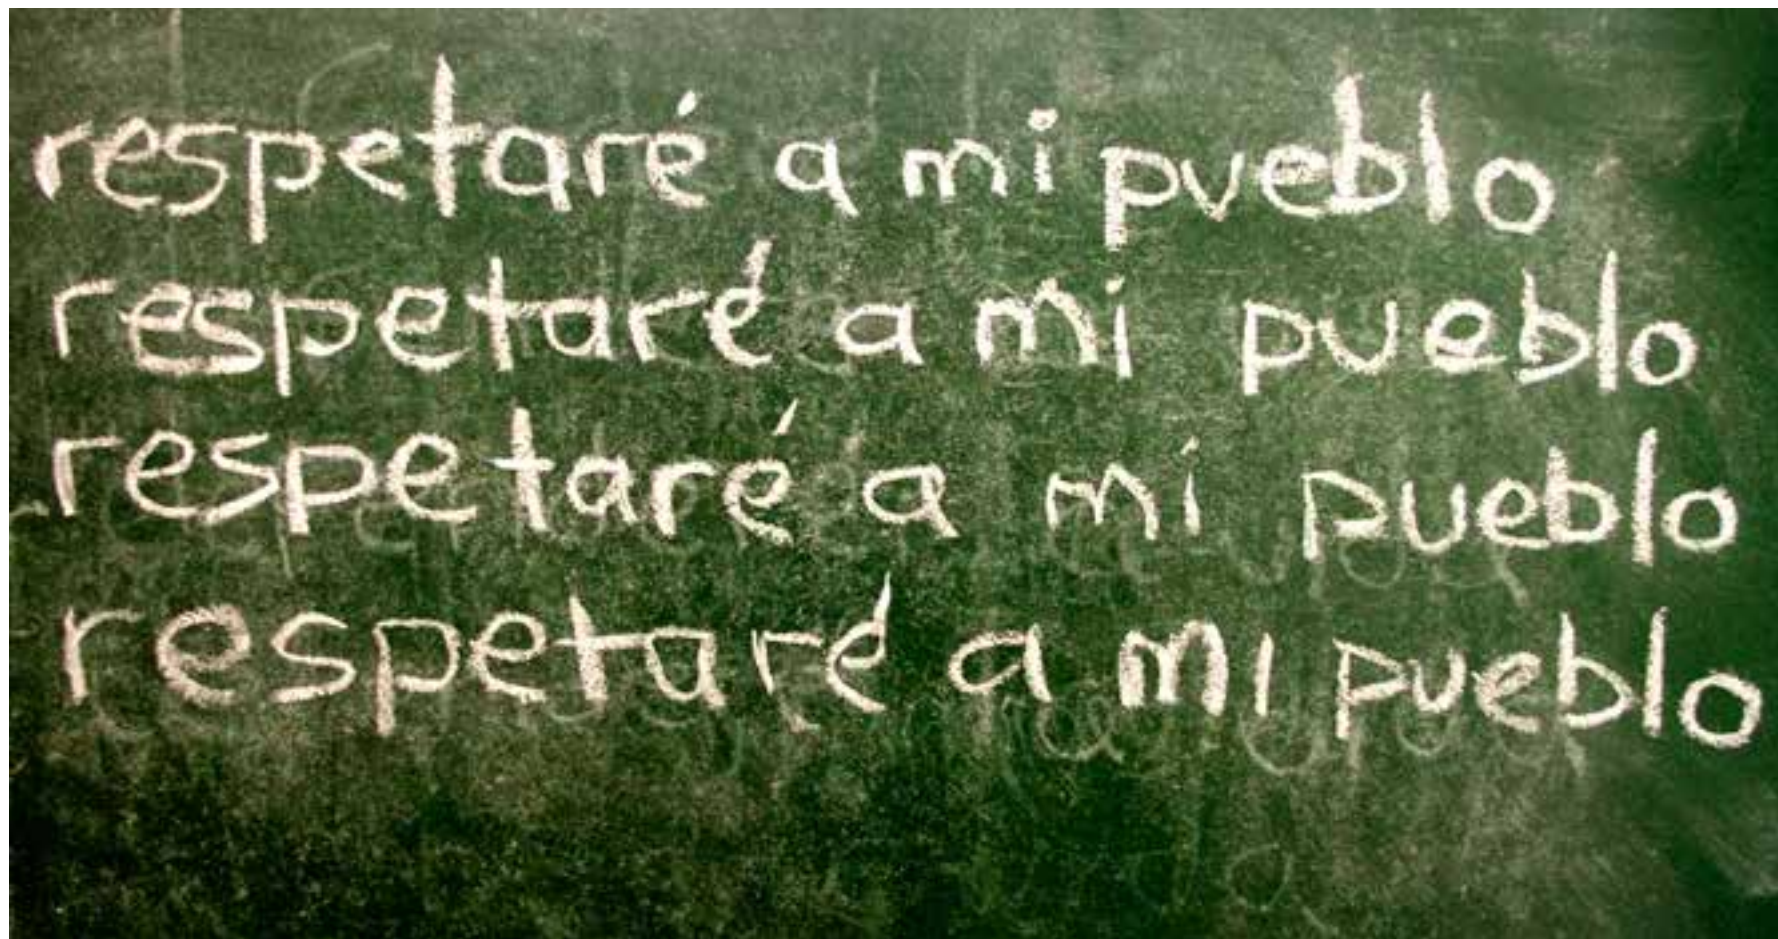 respetaré a mi pueblo
respetaré a mi pueblo
respetaré a mi pueblo
respetaré a mi pueblo